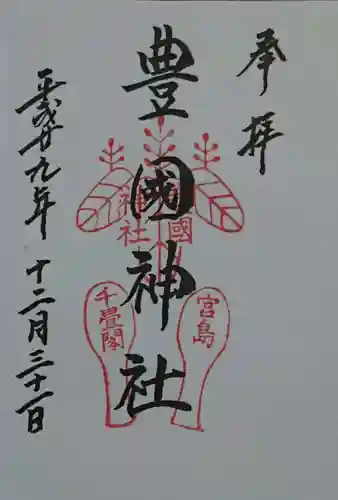 奉拝
豊國神社
國
神社
宮島
千畳閣
平成廿九年十二月三十一日